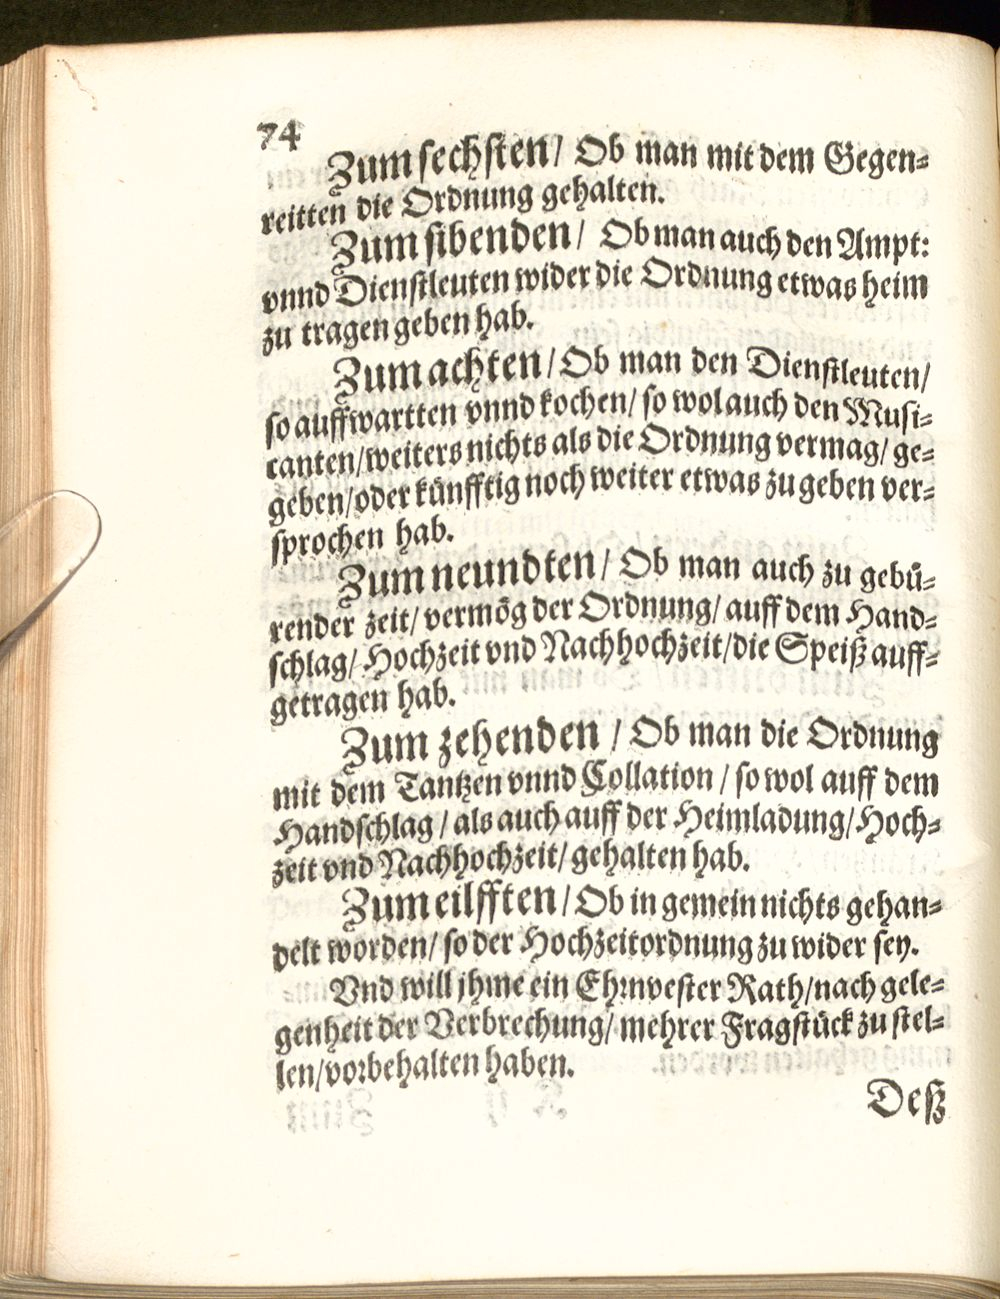 74
Zum sechsten / Ob man mit dem Gegen-
reitten die Ordnung gehalten.
Zum sibenden / Ob man auch den Ampt:
vnnd Dienstleuten wider die Ordnung etwas heim
zu tragen geben hab.
Zum achten / Ob man den Dienstleuten /
so auffwartten vnnd kochen / so wol auch den Musi-
canten / weiters nichts als die Ordnung vermag / ge-
geben / oder künfftig noch weiter etwas zu geben ver-
sprochen hab.
Zum neundten / Ob man auch zu gebü-
render zeit / vermög der Ordnung / auff dem Hand-
schlag / Hochzeit vnd Nachhochzeit / die Speiß auff-
getragen hab.
Zum zehenden / Ob man die Ordnung
mit dem Tantzen vnnd Collation / so wol auff dem
Handschlag / als auch auff der Heimladung / Hoch-
zeit vnd Nachhochzeit / gehalten hab.
Zum eilfften / Ob in gemein nichts gehan-
delt worden / so der Hochzeitordnung zu wider sey.
Vnd will jhme ein Ehrnvester Rath / nach gele-
genheit der Verbrechung / mehrer Fragstück zu stel-
len / vorbehalten haben.
Deß